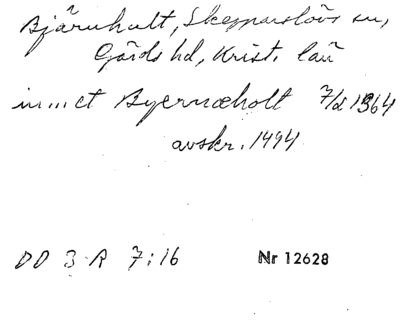 Bjärnhult, Skepparslövs sn,
Gärds hd, Krist. län
in...et Byernæholt 7/2 1364
avskr. 1494
DD 3 R 7:16 Nr 12628